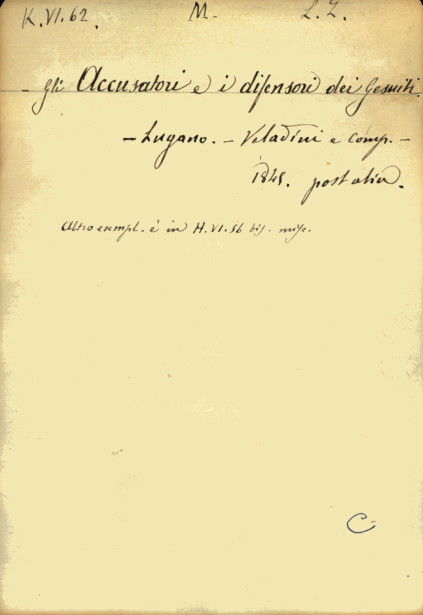 K.VI.62. M. L.Z.
Gli Accusatori e i difensori dei Gesuiti.
- Lugano. - Veladini e Comp. -
1845. post alia.
Altro exempl. è in H.VI.56 bis. misc.
C=